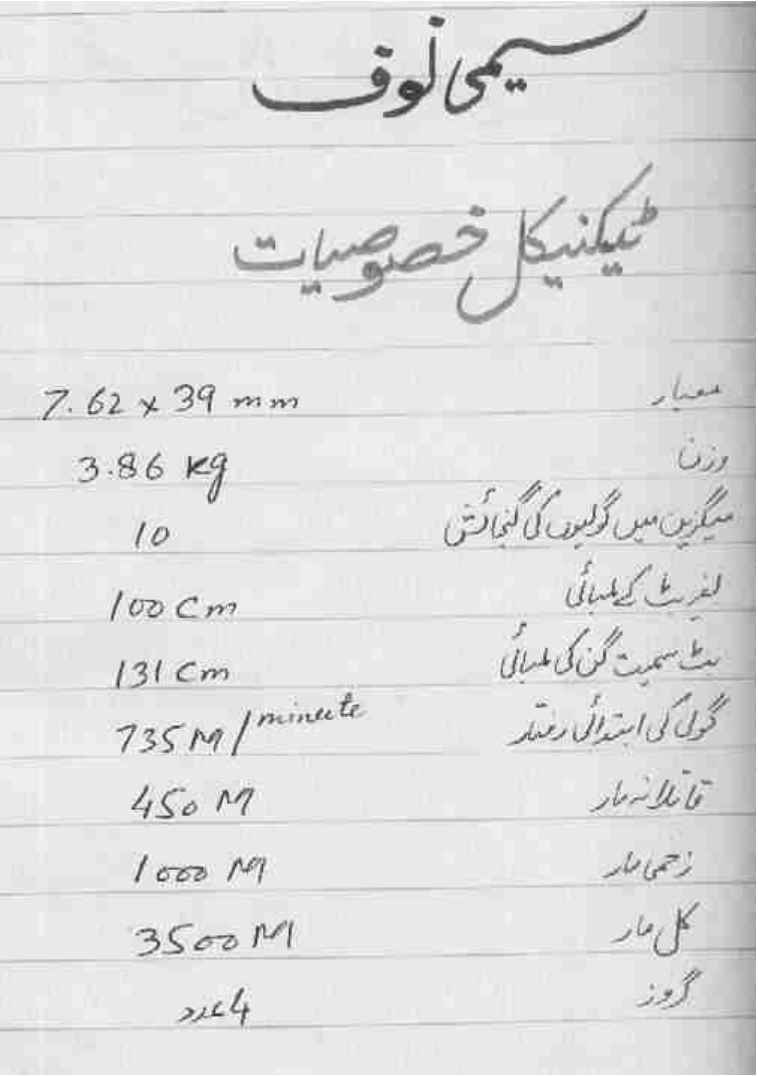 سیمی نوف
ٹیکنیکل خصوصیات
معیار 7.62 x 39 mm
وزن 3.86 kg
میگزین میں گولیوں کی گنجائش 10
بغیر بٹ کے لمبائی 100 Cm
بٹ سمیت گن کی لمبائی 131 Cm
گولی کی ابتدائی رفتار 735 M/minute
قاتلانہ مار 450 M
زخمی مار 1000 M
کل مار 3500 M
گروز 4 عدد